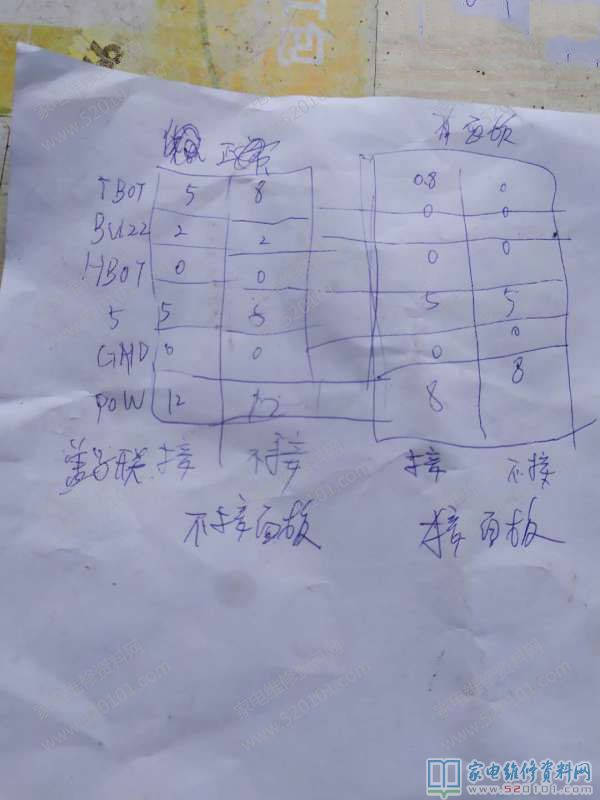 打包
有面板
TBOT 5 8 0.8 0
BUZZ 2 2 0 0
HBOT 0 0 0 0
5 5 5 5 5
GND 0 0 0 0
POW 12 12 8 8
接 不接 接 不接
不接面板 接面板
家电维修资料网
www.520101.com